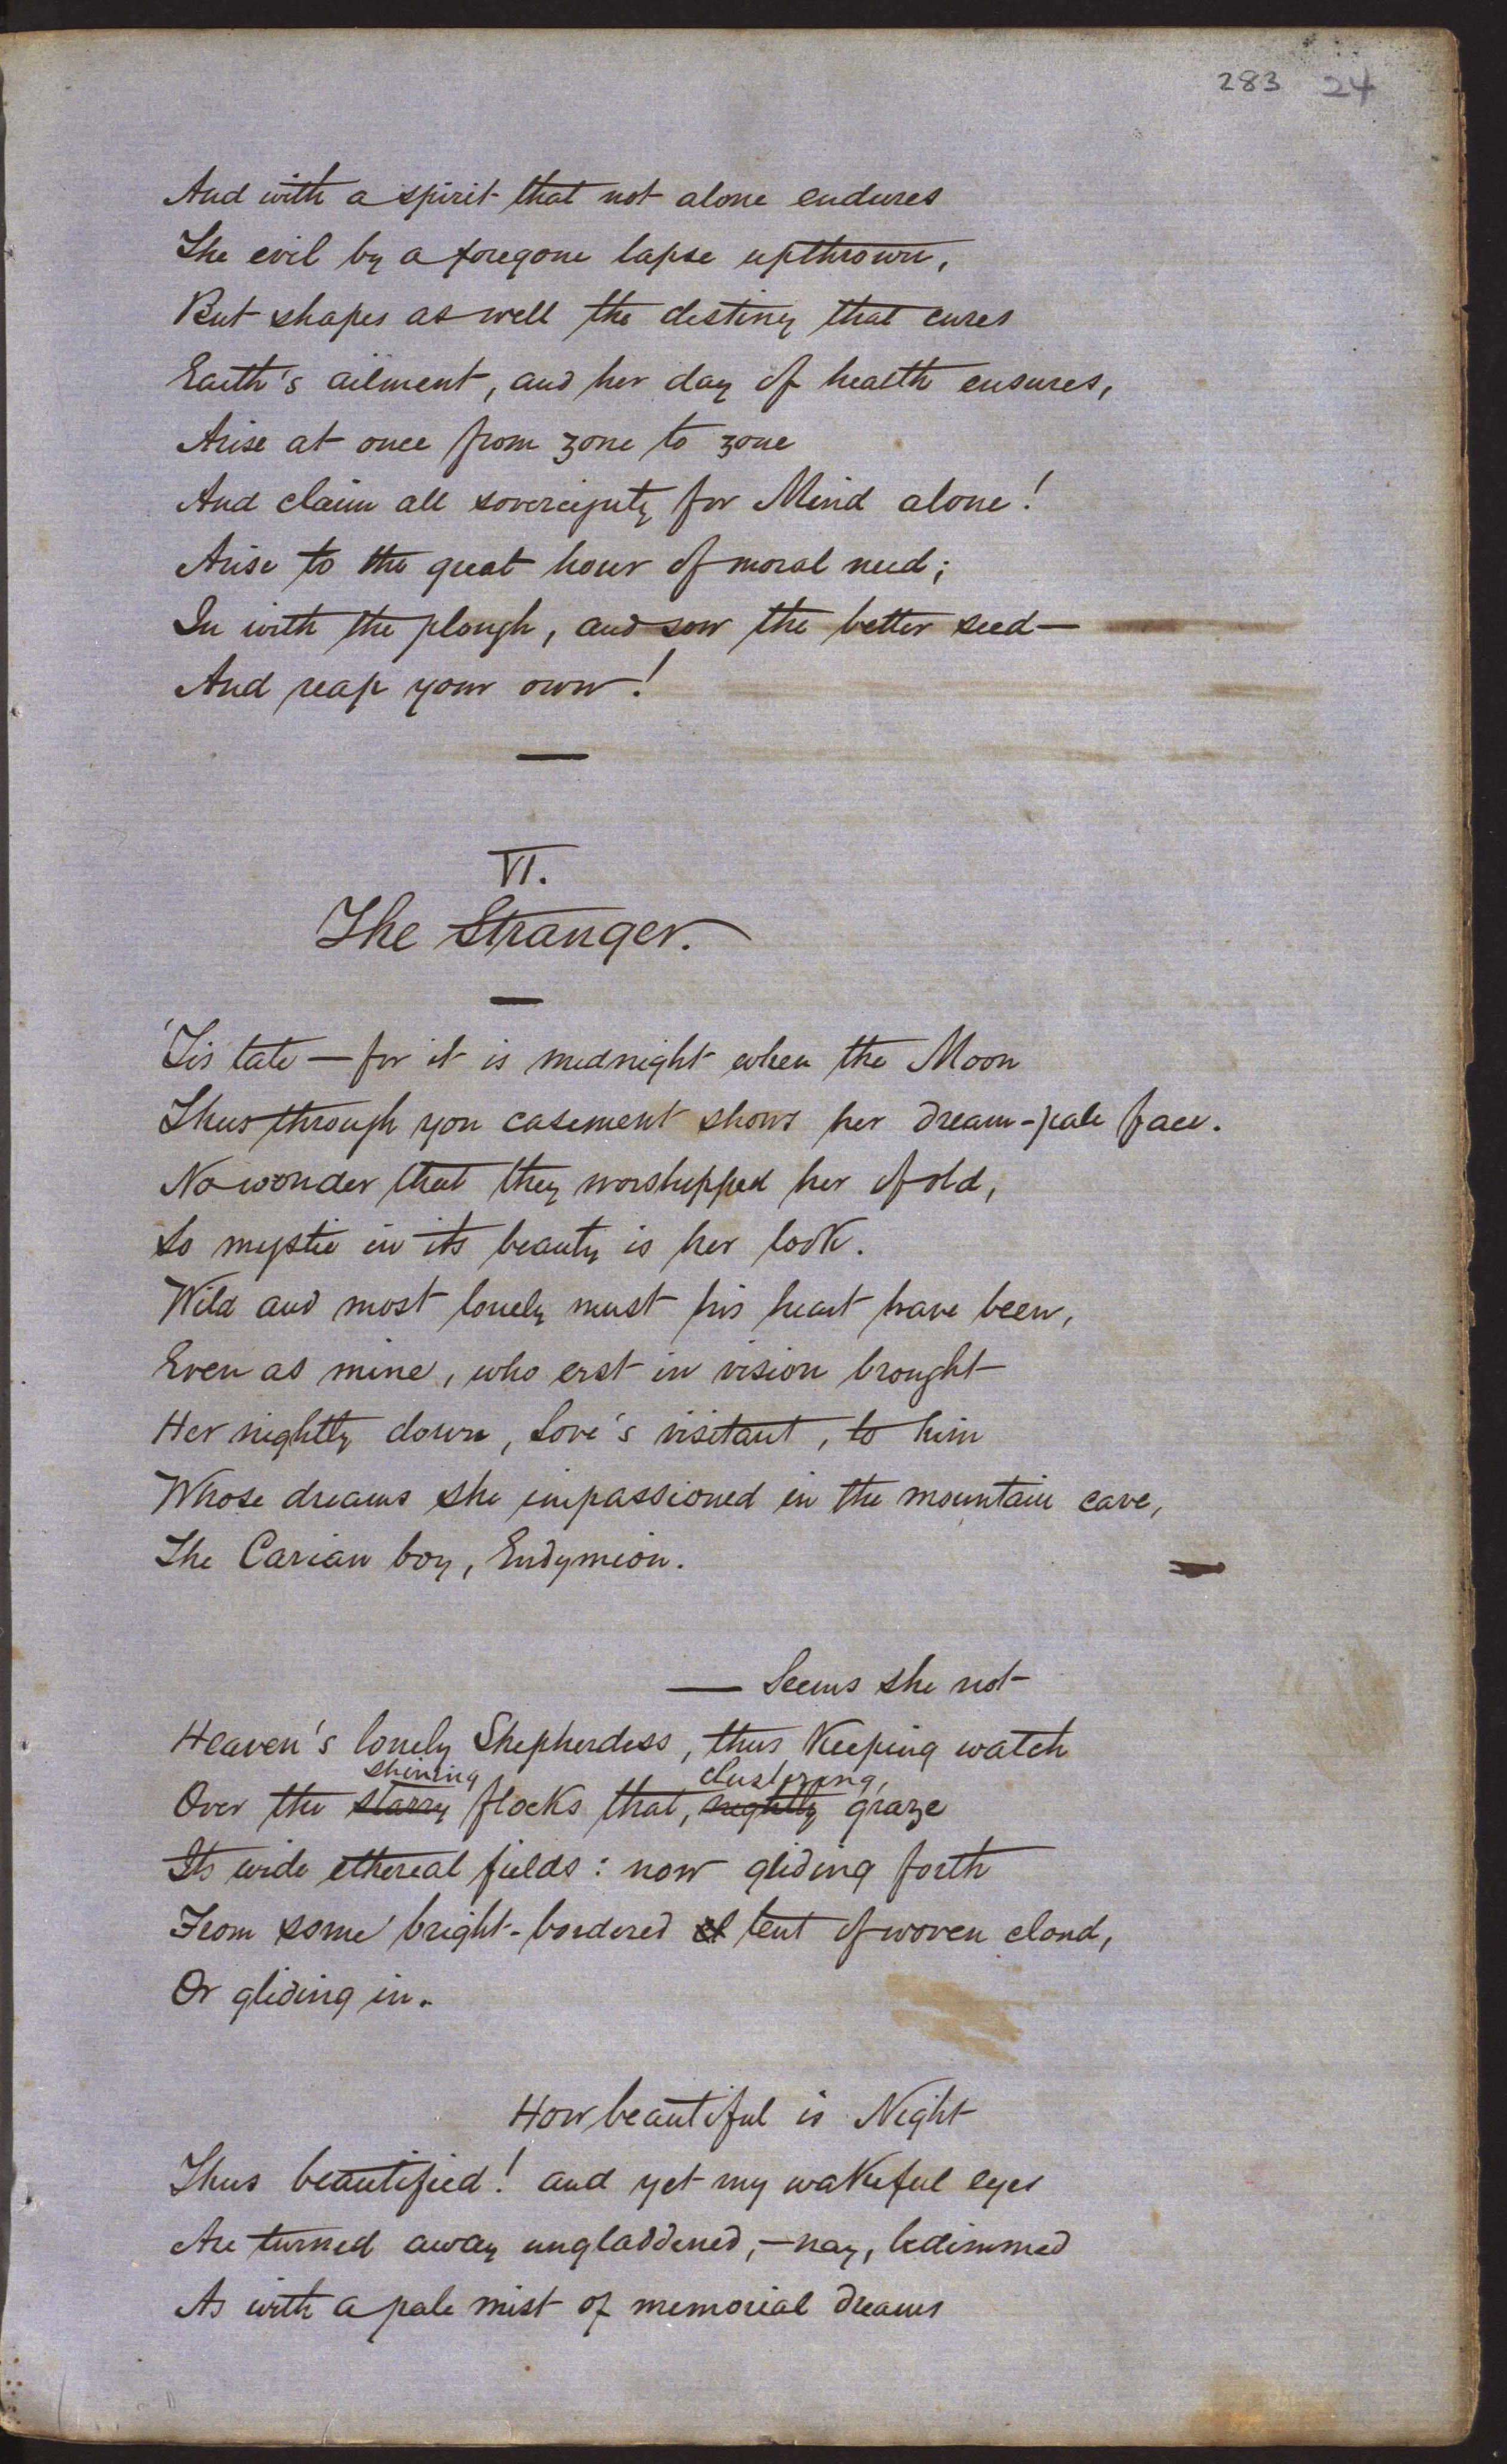 283 24
And with a spirit that not alone endures
The evil by a foregone lapse upthrown,
But shapes as well the destiny that cures
Earth's ailment, and her day of health ensures,
Arise at once from zone to zone
And claim all sovereignty for Mind alone!
Arise to the great hour of moral need;
In with the plough, and sow the better seed—
And reap your own!
VI.
The Stranger.
'Tis late — for it is midnight when the Moon
Thus through yon casement shows her dream-pale face.
No wonder that they worshipped her of old,
So mystic in its beauty is her look.
Wild and most lonely must his heart have been,
Even as mine, who erst in vision brought
Her nightly down, Love's visitant, to him
Whose dreams she impassioned in the mountain cave,
The Carian boy, Endymion.
— Seems she not
Heaven's lonely Shepherdess, thus keeping watch
shining clustering,
Over the starry flocks that, nightly graze
Its wide ethereal fields: now gliding forth
From some bright-bordered tent of woven cloud,
Or gliding in.
How beautiful is Night
Thus beautified! and yet my wakeful eyes
Are turned away ungladdened,—nay, bedimmed
As with a pale mist of memorial dreams